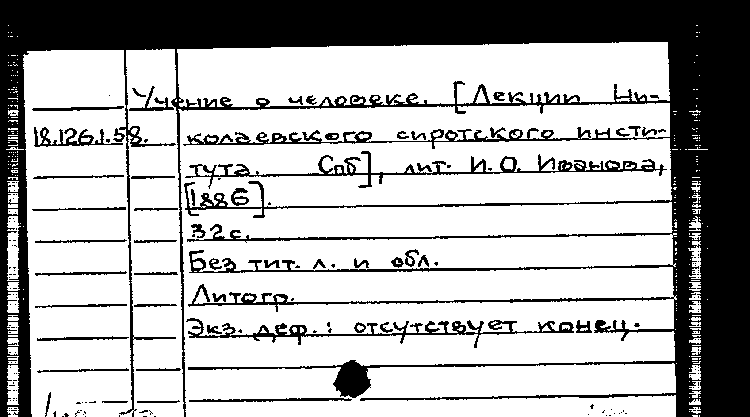 Учение о человеке. [Лекции Ни-
18.126.1.58. колаевского сиротского инсти-
тута. Спб], лит. И.О. Иванова,
[1886].
32 с.
Без тит. л. и обл.
Литогр.
Экз. деф.: отсутствует конец.